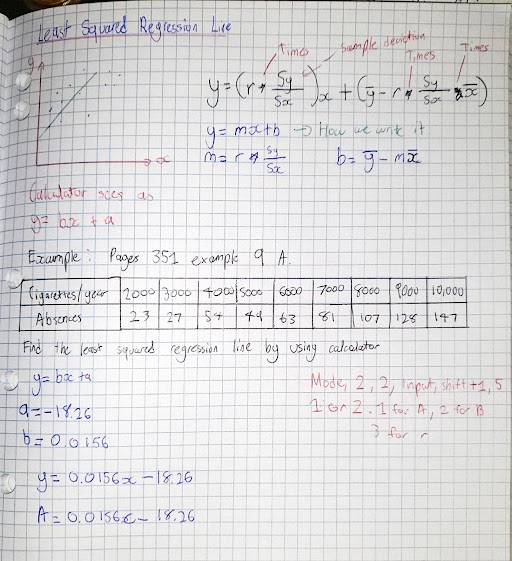 Least Squared Regression Line
y
x
Times
Sample deviation
Times
Times
y = (r * Sy/Sx)x + (ȳ - r * Sy/Sx * x̄)
y = mx+b → How we write it
m = r * Sy/Sx
b = ȳ - mx̄
Calculator sees as
y = bx + a
Example: Pages 351 example 9 A.
Cigarettes/year 2000 3000 4000 5000 6000 7000 8000 9000 10,000
Absences 23 27 54 63 81 107 128 147
Find the least squared regression line by using calculator
y = bx + a
a = -18.26
b = 0.0156
y = 0.0156x - 18.26
A = 0.0156c - 18.26
Mode, 2, 2, Input, shift + 1, 5
1 or 2. 1 for A, 2 for B
3 for r